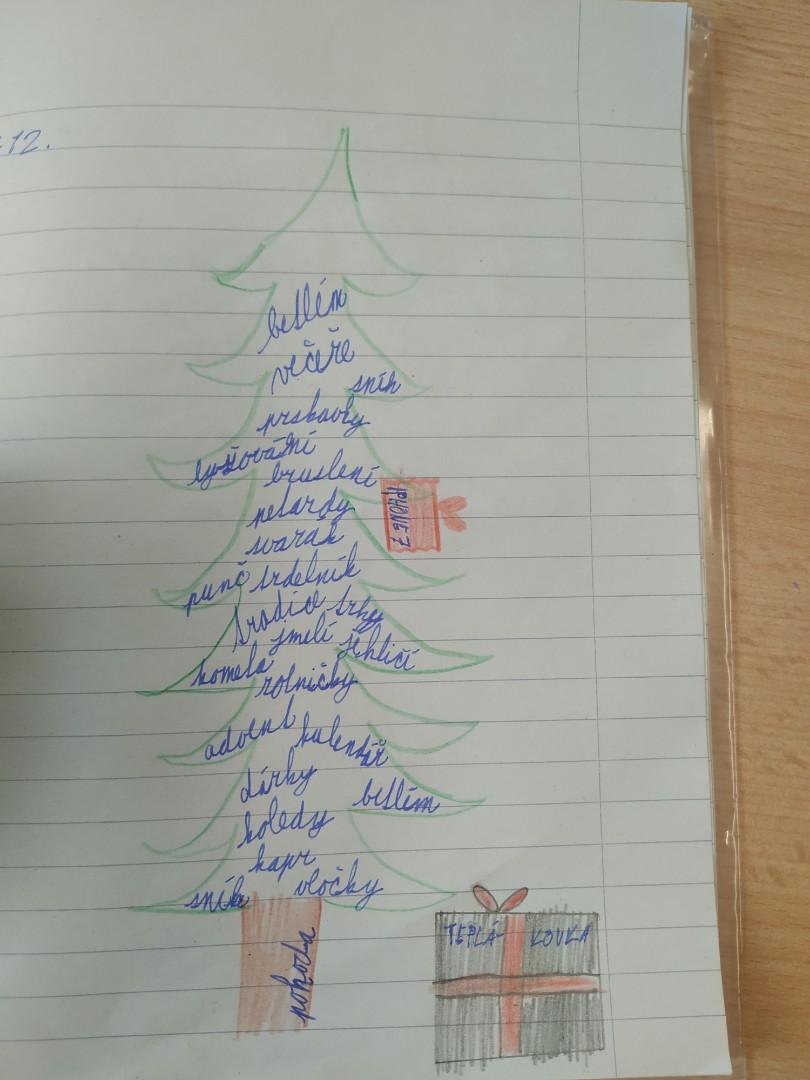 12.
betlém
večeře
sníh
prskavky
lyžování
bruslení
petardy
IPHONE 7
svařák
punč trdelník
tradice trhy
jmelí jehličí
kometa
rolničky
advent kalendář
dárky
betlém
koledy
kapr
sníh vločky
pohoda
TEPLÁ KOVKA